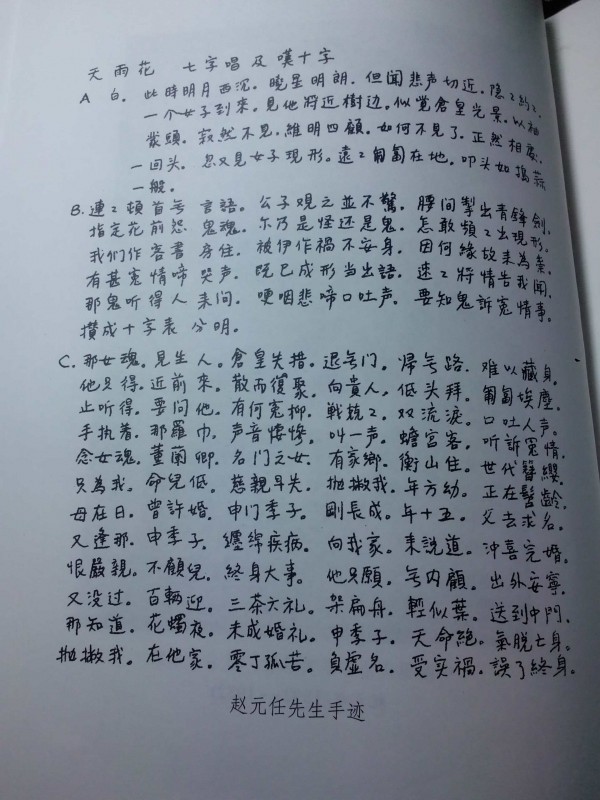 天雨花 七字唱及嘆十字
A 白. 此時明月西沉. 曉星明朗. 但闻悲声切近. 隐2約2.
一个女子到來. 見他将近樹边. 似覚倉皇光景. 以袖
蒙頭. 寂然不見. 維明四顧. 如何不見了. 正然相疑.
一回头. 忽又見女子現形. 遠2匍匐在地. 叩头如搗蒜
一般.
B. 連2頓首号 言語. 公子观之並不驚. 腰间掣出青鋒劍.
指定花前怨 鬼魂. 尔乃是怪还是鬼. 怎敢頻2出現形.
我们作客書 房住. 被伊作禍不安身. 因何緣故来為祟.
有甚寃情啼 哭声. 既已成形当出語. 速2將情告我聞.
那鬼听得人 来问. 哽咽悲啼口吐声. 要知鬼訴寃情事.
攢成十字表 分明.
C. 那女魂. 見生人. 倉皇失措. 退号门. 帰号路. 难以藏身.
他只得. 近前來. 散而復聚. 向貴人. 低头拜. 匍匐埃塵.
止听得. 要问他. 有何寃抑. 戦兢2. 双流淚. 口吐人声.
手执着. 那羅巾. 声音悽惨. 叫一声. 蟾宮客. 听訴冤情.
念女魂. 董蘭卿. 名门之女. 有家鄉. 衡山住. 世代簪纓.
只為我. 命兒低. 慈親早失. 抛撇我. 年方幼. 正在髫齡.
母在日. 曾許婚. 申门季子. 剛長成. 年十五. 父去求名.
又逢那. 申季子. 纏绵疾病. 向我家. 来説道. 沖喜完婚.
恨嚴親. 不顧兒. 終身大事. 他只願. 号内顧. 出外安寧.
又没过. 百輛迎. 三茶六礼. 架扁舟. 輕似葉. 送到申門.
那知道. 花燭夜. 未成婚礼. 申季子. 天命絶. 氣脱亡身.
抛撇我. 在他家. 零丁孤苦. 負虚名. 受实禍. 誤了終身.
赵元任先生手迹